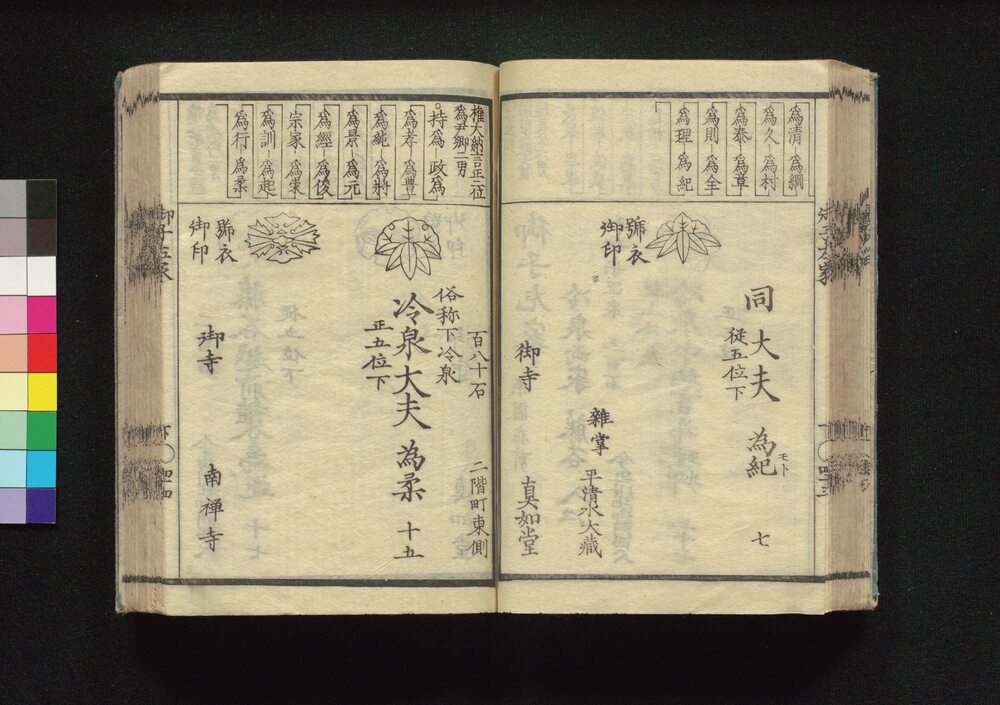 為清―為綱
為久―為村
為泰―為章
為則―為全
為理 為紀
同大夫 為紀 七
モト
従五位下
號衣
御印
雜掌 平清水大藏
御寺 真如堂
權大納言正二位
為尹卿二男
持為 政為
為孝 為豊
為純 為將
為景―為元
為經―為俊
宗家 為榮
為訓―為起
為行 為柔
百八十石 二階町東側
俗称下冷泉
冷泉大夫 為柔 十五
正五位下
號衣
御印
御寺 南禅寺